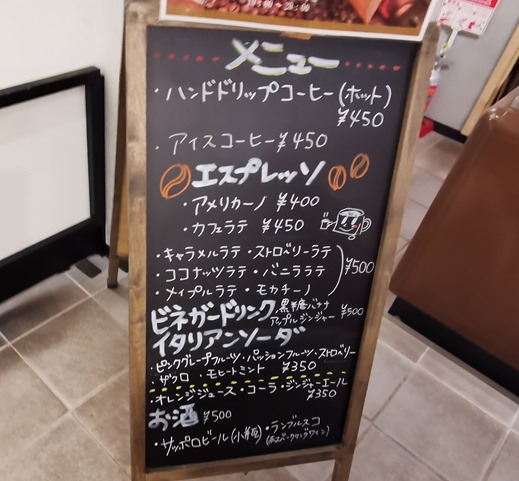 10:00 ~ 20:00
メニュー
・ハンドドリップコーヒー(ホット)
¥450
・アイスコーヒー ¥450
エスプレッソ
・アメリカーノ ¥400
・カフェラテ ¥450
・キャラメルラテ ・ストロベリーラテ
・ココナッツラテ ・バニララテ ¥500
・メイプルラテ ・モカチーノ
ビネガードリンク 黒糖バナナ
アップルジンジャー ¥500
イタリアンソーダ
・ピンクグレープフルーツ・パッションフルーツ・ストロベリー
・ザクロ ・モヒートミント ¥350
・オレンジジュース・コーラ・ジンジャーエール
¥350
お酒 ¥500
・サッポロビール(小瓶)・ランブルスコ
(赤スパークリングワイン)